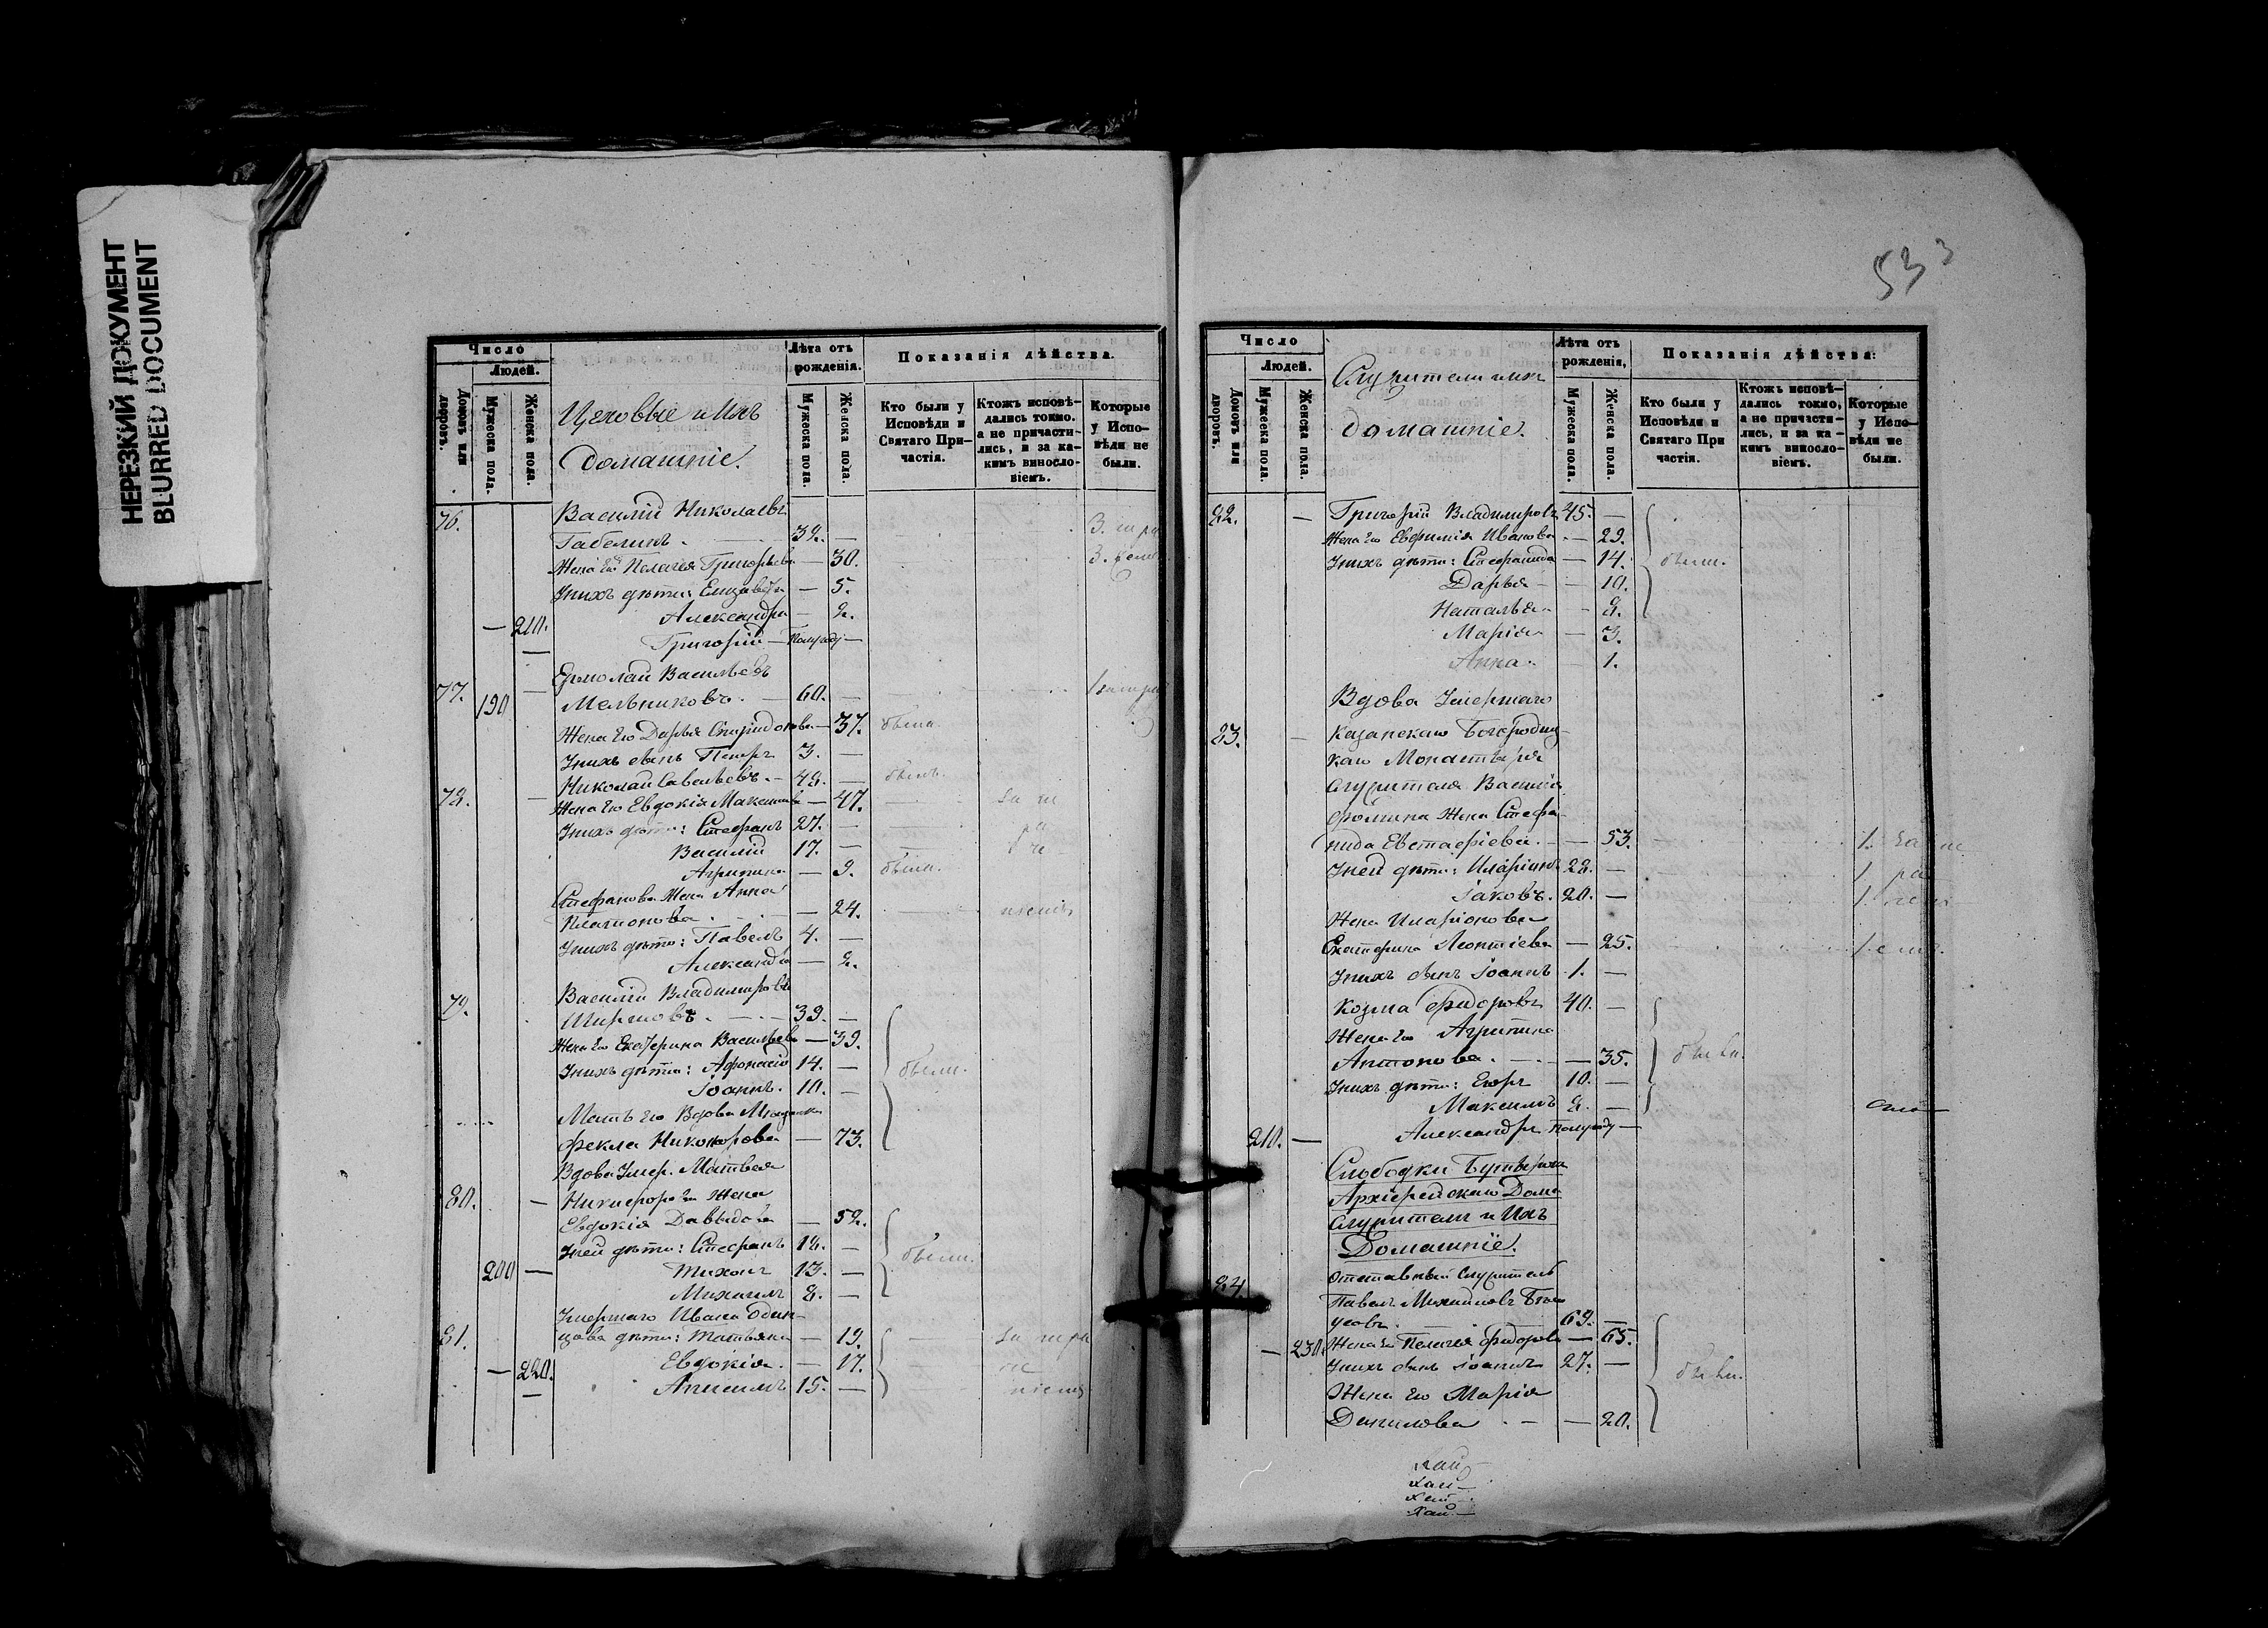 НЕРЕЗКИЙ ДОКУМЕНТ
BLURRED DOCUMENT
Число
Людей.
Домовъ или дворовъ.
Мужеска пола.
Женска пола.
Цеховые и Ихъ
домашніе.
Лѣта отъ рожденія.
Мужеска пола.
Женска пола.
Показанія дѣйства.
Кто были у Исповѣди и Святаго Причастія.
Ктожъ исповѣдались токмо, а не причастились, и за какимъ винословіемъ.
Которые у Исповѣди не были.
76. Василій Николаевъ
32. —
Жена его Пелагея Григорьева — 30.
У нихъ дѣти: Елизавета — 5.
Александра — 2.
— 210.
Григорій — Полугоду —
Ермолай Васильевъ
77. 190 — Мельниковъ. — 60. —
Жена его Дарья Спиридонова — 37. были.
У нихъ сынъ Петръ 3. —
78. — Николай Савельевъ. — 48. — былъ.
Жена его Евдокія Максимова — 47.
У нихъ дѣти: Стефанъ 27. —
Василій 17. —
Агрипина — 9. были.
Стефанова Жена Анна
Платонова — 24.
У нихъ дѣти: Павелъ 4. —
Александра — 2.
79. Василій Владимировъ
39. —
Жена его Екатерина Васильева — 39.
У нихъ дѣти: Афонасій 14. — были.
Іоаннъ. 10. —
Мать его Вдова
Фекла Никонорова — 73.
Вдова Умер. Матвея
80. — Никифорова Жена
Евдокія Давыдова — 52.
У ней дѣти: Стефанъ 18. — были.
200 — Тихонъ 13. —
Михаилъ 8. —
Умершаго Ивана Один-
81. цова дѣти: Татьяна — 19.
— 220. Евдокія. — 17.
— 15. —
533
Число
Людей.
Домовъ или дворовъ.
Мужеска пола.
Женска пола.
Служители ихъ
домашніе.
Лѣта отъ рожденія,
Мужеска пола.
Женска пола.
Показанія дѣйства:
Кто были у Исповѣди и Святаго Причастія.
Ктожъ исповѣдались токмо, а не причастились, и за какимъ винословіемъ.
Которые у Исповѣди не были.
82. — Григорій Владимировъ 45. —
Жена его Евфимія Иванова — 29.
У нихъ дѣти: Стефанида — 14. были.
Дарья — 10.
Наталья — 8.
Марія — 3.
Анна. — 1.
Вдова Умершаго
83. — Казанскаго Богородиц-
каго Монастыря
служителя Василія
Фомина Жена Стефа-
нида Евстафіева. — 53.
У ней дѣти: Иларіонъ 28. —
Іаковъ. 20. —
Жена Иларіонова
Екатерина Леонтіева — 25.
У нихъ сынъ Іоаннъ 1. —
Козма Федоровъ 40. —
Жена его Агрипина
Антонова. — 35. были.
У нихъ дѣти: Егоръ 10. —
Максимъ 8. —
210. — Александръ Полугоду —
Слободки Бутырки
Архіерейскаго Дома
служители и Ихъ
Домашніе.
84. Отставный служитель
69. —
— 230. Жена его Пелагея Федорова — 65.
У нихъ сынъ Іоаннъ 27. — были.
Жена его Марія
Данилова — 20.